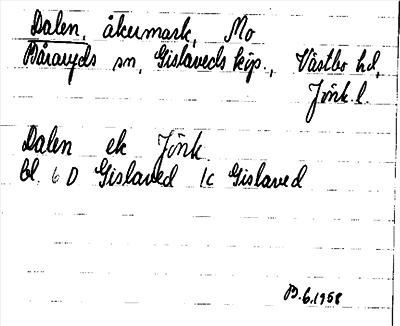 Dalen, åkermark, Mo
Båraryds sn, Gislaveds köp., Västbo hd,
Jönk.l.
Dalen ek Jönk.
bl. 6 D Gislaved 1c Gislaved
B.6.1958